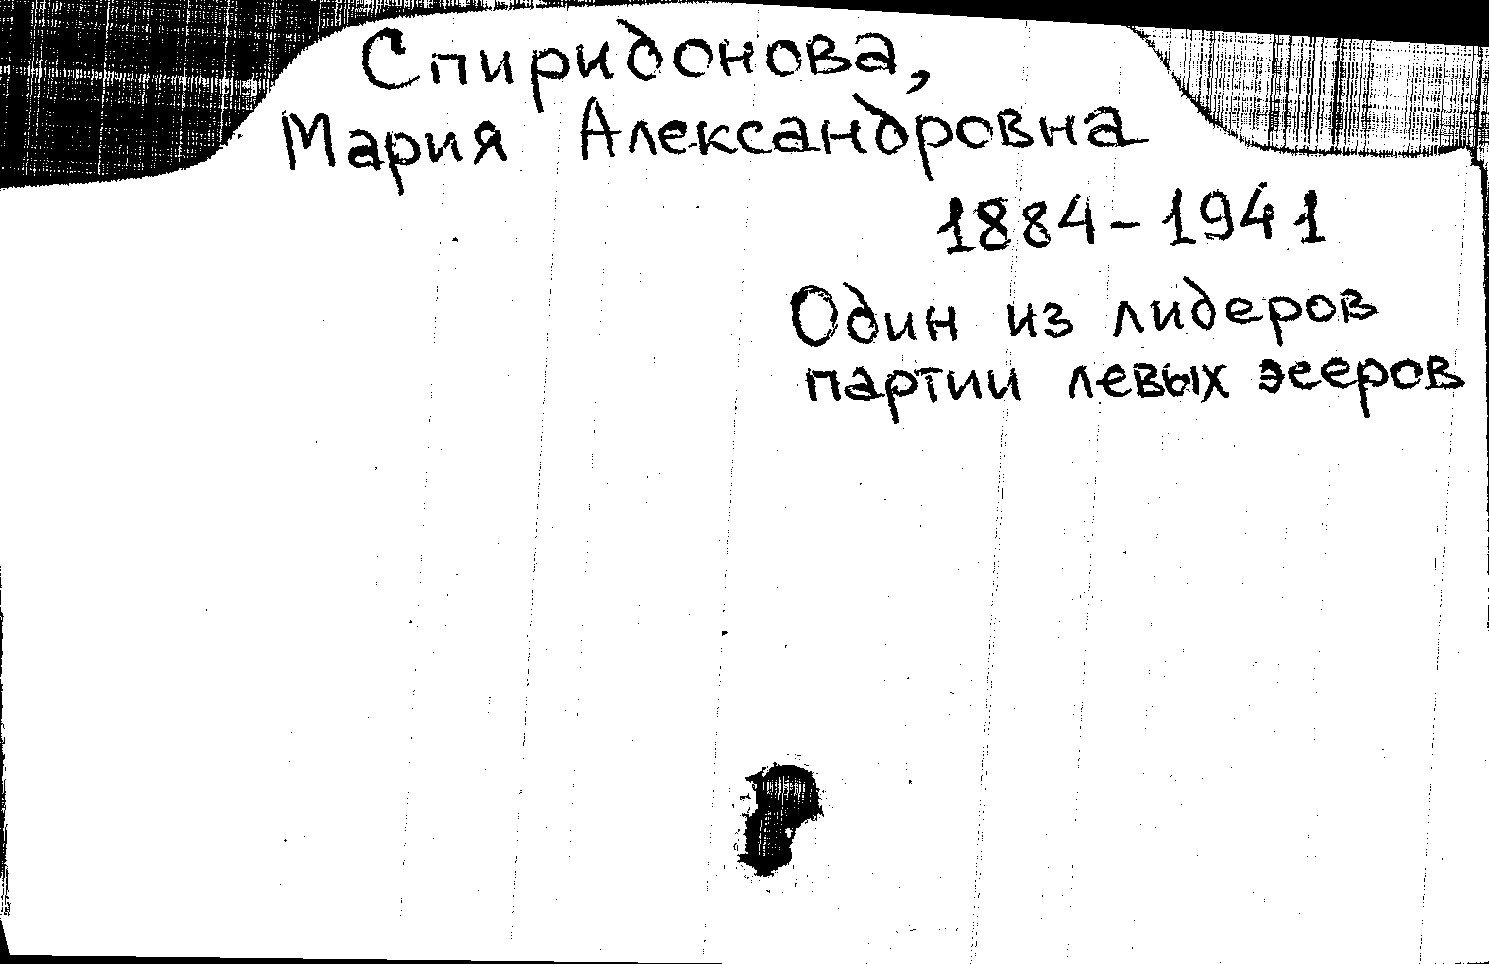 Спиридонова,
Мария Александровна
1884-1941
Один из лидеров
партии левых эсеров